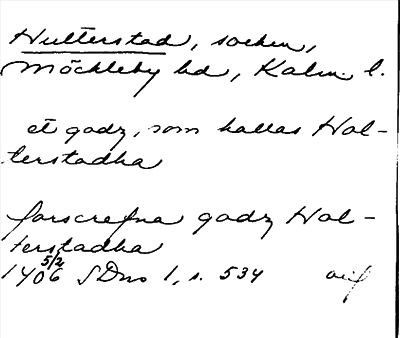 Hulterstad, socken,
Möckleby hd, Kalm. l.
et godz, som kallas Hol-
terstadha
forscrefna godz Hol-
terstadha
5/2
1406 SDns 1, s. 534